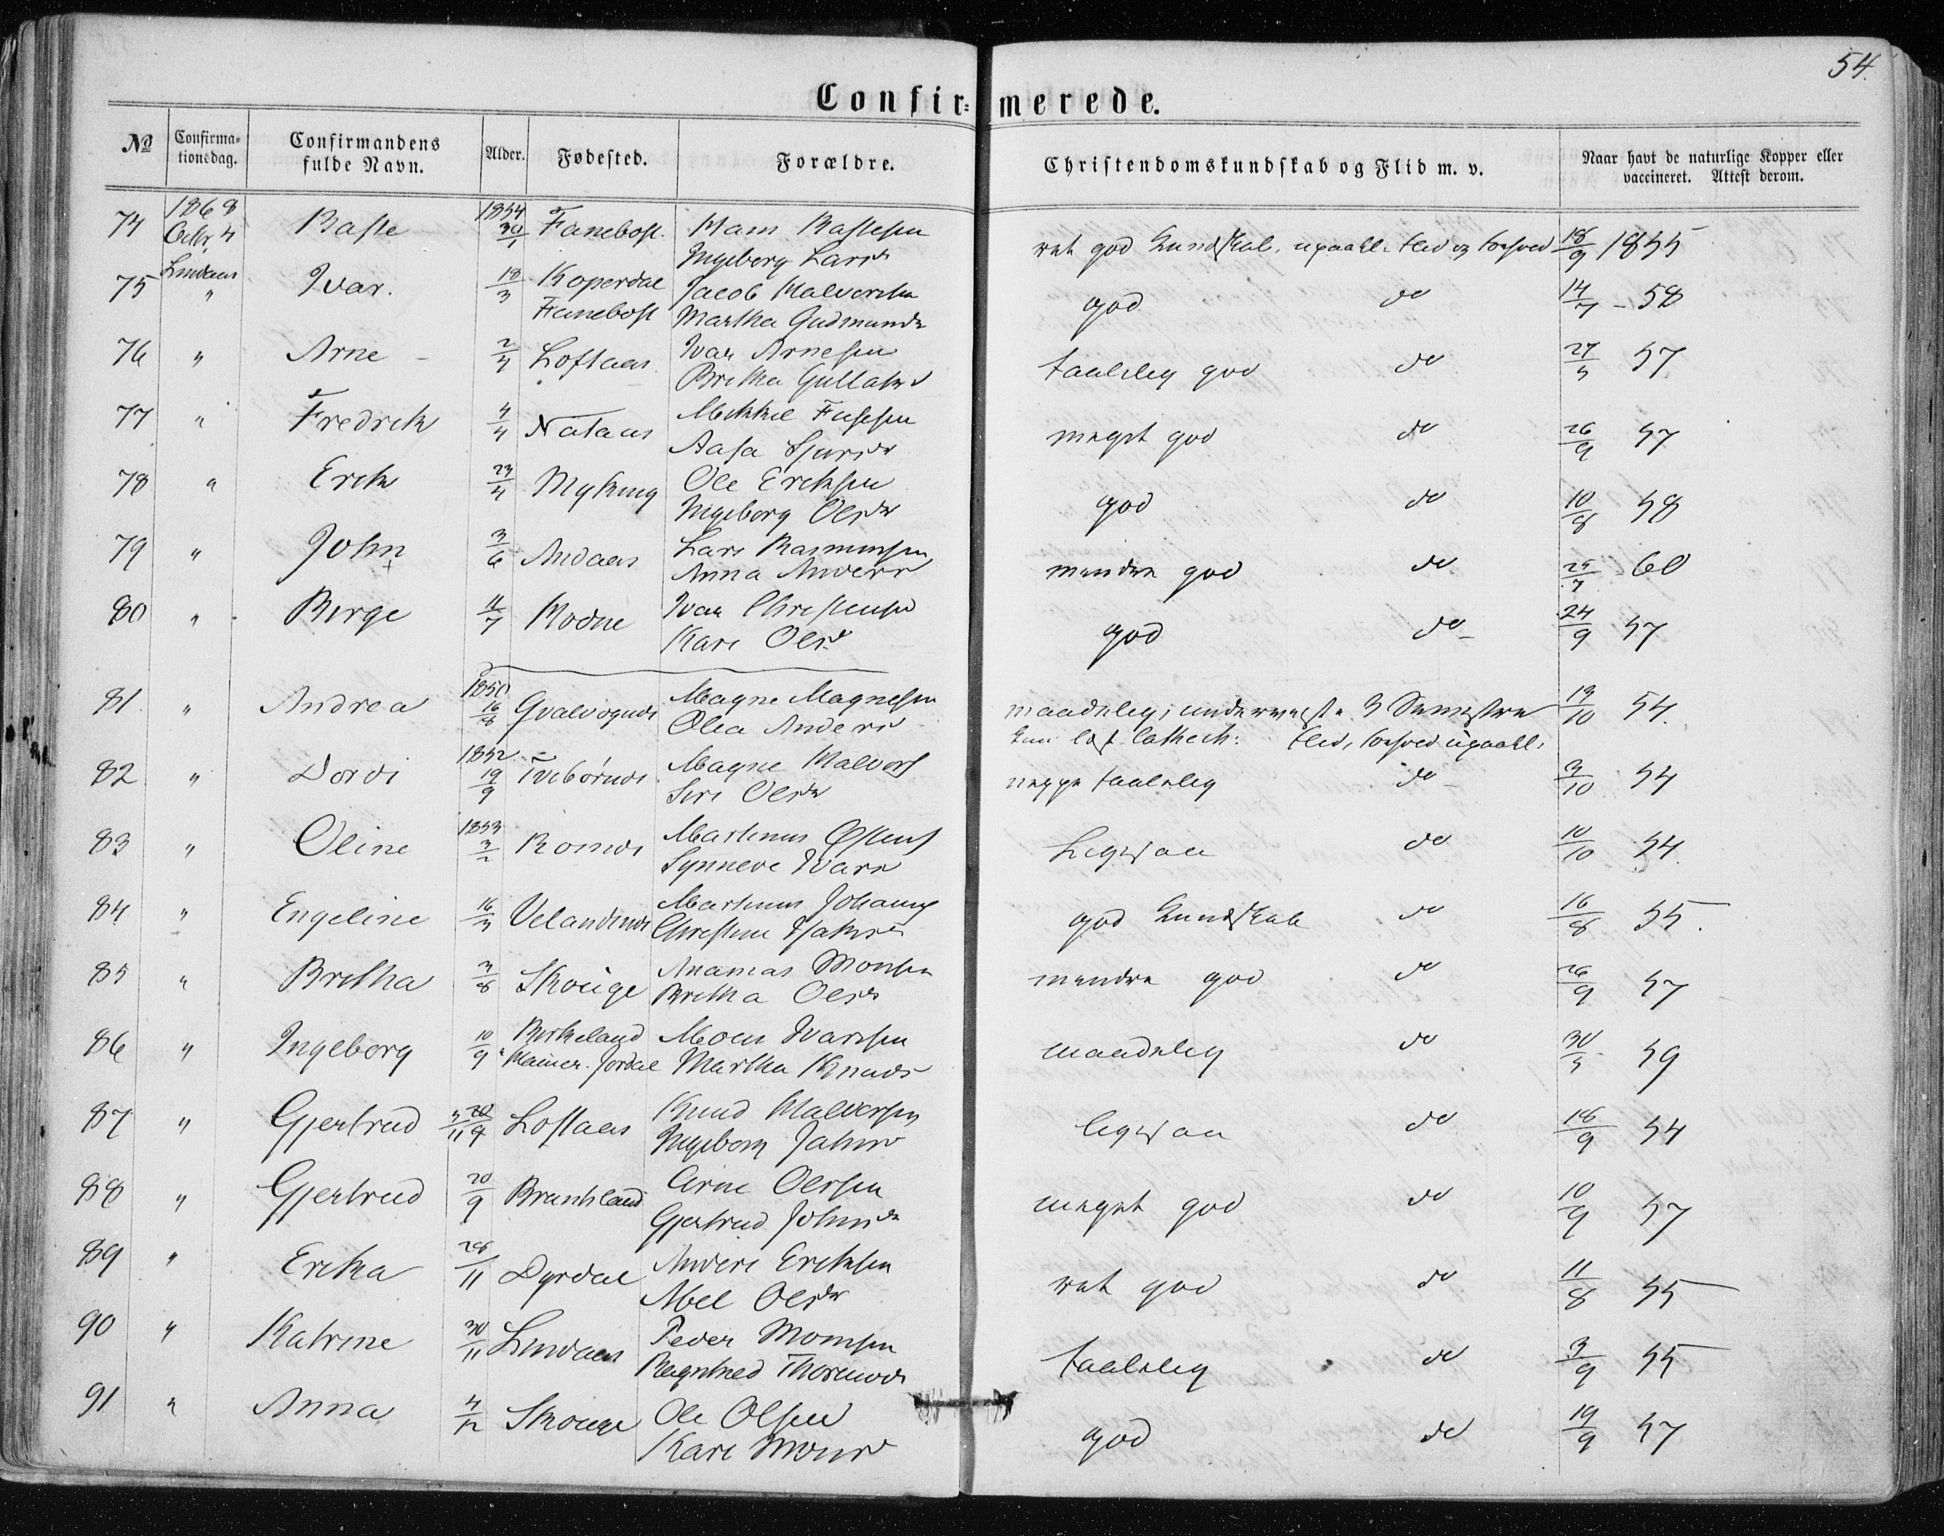 54.
Confir= merede.
No Confirma=tionsdag. Confirmandens fulde Navn. Alder. Fødested. Forældre. Christendomskundskab og Flid m. v. Naar havt de naturlige Kopper eller vaccineret. Attest derom.
74 1868 Octbr 4 Lindaas Baste 1854 30/1 Fanebost. Hans Bastesen
Ingeborg Larsd ret god Kundskab, upaakl. Flid og Forhold 18/9 1855
75 " Ivar. 18/3 Koperdal Fanebost Jacob Halvorsen
Martha Gudmundsd god do 14/7 - 58
76 " Arne - 2/4 Loftaas Ivar Arnesen
Britha Gullaksd taalelig god do 27/5 57
77 " Fredrik 4/4 Nataas Mikkel
Aasa Sjursdr meget god do 26/9 57
78 " Erik 23/4 Myking Ole Eriksen
Ingeborg Olsdr god do 10/8 58
79 " John 3/6 Andaas Lars Rasmusen
Anna Andersd mindre god do 25/7 60
80 " Børge 11/7 Hodne Ivar Christensen
Kari Olsd god do 24/9 57
81. " Andrea 1850 16/8 Magne Magnesen
Olea Andersd maadelig, 3 Semestre 19/10 54.
kun læst Cathech: Flid, Forhold upaakl.
82 " Dordi 1852 19/9 Magne Halvors
Siri Olsdr neppe taalelig do 9/10 54
83 " Oline 1853 3/2 Martinus
Synneve Ivarsd Ligesaa do 10/10 54.
84 " Engeline 16/3 Martinus
god Kundskab do 16/8 55.
85 " Britha 3/8 Skouge Ananias Monsen
Britha Olsdr mindre god do 26/9 57
86 " Ingeborg 10/9 Birkeland Hamer. Jordal Mons Ivarsen
Martha Knudsd maadelig do 30/5 59
87 " Gjertrud Loftaas Knud Halvorsen
Ingeborg ligesaa do 18/9 54
88 " Gjertrud 20/9 Arne Olsen
Gjertrud Johnsdr meget god do 10/9 57
89 " Erika 28/11 Dyrdal Anders Eriksen
Abel Olsdr ret god do 11/8 55
90 " Katrine 30/11 Lindaas Peder Monsen
Thormodsd taalelig do 3/9 55
91 " Anna 4/12 Skouge Ole Olsen
Kari Monsd god do 19/9 57